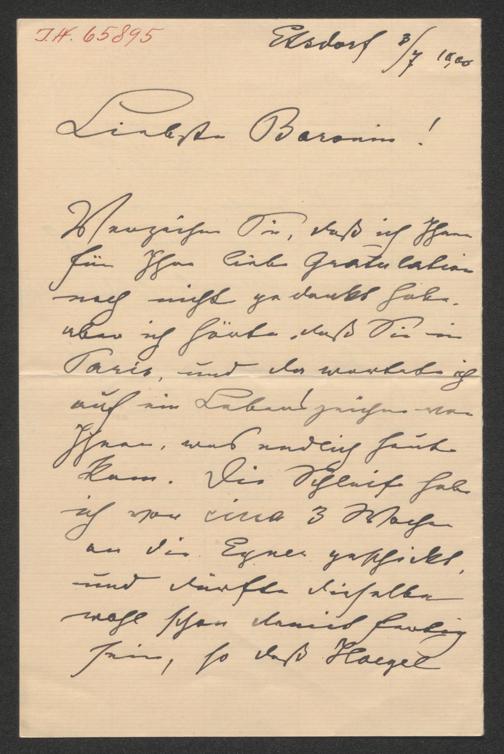 I.N. 65895
Etsdorf 3/7 1900
Liebste Baronin!
Verzeihen Sie, daß ich Ihnen
für Ihre liebe Gratulation
noch nicht gedankt habe.
aber ich hörte, daß Sie in
Paris, und da wartete ich
auf ein Lebenszeichen von
Ihnen, was endlich heute
kam. Die Schleife habe
ich vor circa 3 Wochen
an die geschickt,
und dürfte dieselbe
wohl schon damit fertig
sein, so daß